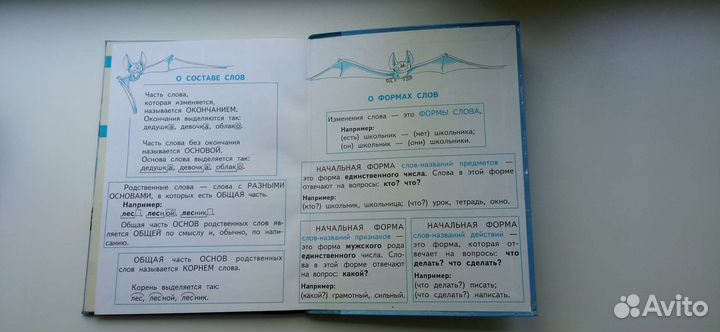 О СОСТАВЕ СЛОВ
Часть слова,
которая изменяется,
называется ОКОНЧАНИЕМ.
Окончания выделяются так:
дедушка, девочка, облако.
Часть слова без окончания
называется ОСНОВОЙ.
Основа слова выделяется так:
дедушка, девочка, облако.
Родственные слова — слова с РАЗНЫМИ
ОСНОВАМИ, в которых есть ОБЩАЯ часть.
Например:
лес, лесной, лесник.
Общая часть ОСНОВ родственных слов яв-
ляется ОБЩЕЙ по смыслу и, обычно, по на-
писанию.
ОБЩАЯ часть ОСНОВ родственных
слов называется КОРНЕМ слова.
Корень выделяется так:
лес, лесной, лесник.
О ФОРМАХ СЛОВ
Изменения слова — это ФОРМЫ СЛОВА.
Например:
(есть) школьник — (нет) школьника;
(он) школьник — (они) школьники.
НАЧАЛЬНАЯ ФОРМА слов-названий предметов —
это форма единственного числа. Слова в этой форме
отвечают на вопросы: кто? что?
Например:
(кто?) школьник, школьница; (что?) урок, тетрадь, окно.
НАЧАЛЬНАЯ ФОРМА
слов-названий признаков —
это форма мужского рода
единственного числа. Сло-
ва в этой форме отвечают
на вопрос: какой?
Например:
(какой?) грамотный, сильный.
НАЧАЛЬНАЯ ФОРМА
слов-названий действий —
это форма, которая от-
вечает на вопросы: что
делать? что сделать?
Например:
(что делать?) писать;
(что сделать?) написать.
Avito